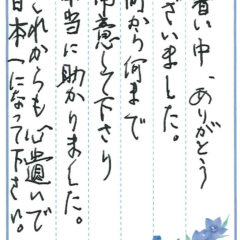 暑い中、ありがとう
ざいました。
何から何まで
用意して下さり
本当に助かりました。
これからも心遣いで
日本一になって下さい。